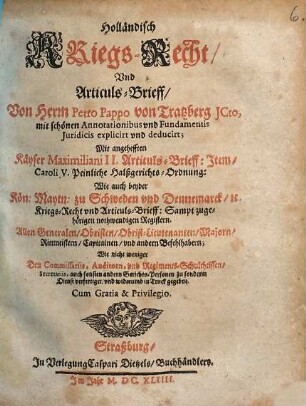 6.
Holländisch
KRiegs-Recht/
Vnd
Articuls-Brieff/
Von Herrn Petro Pappo von Tratzberg JCto,
mit schönen Annotationibus vnd Fundamentis
Juridicis explicirt vnd deducirt;
Mit angehefften
Käyser Maximiliani II. Articuls-Brieff: Item/
Caroli V. Peinliche Halßgerichts-Ordnung:
Wie auch beyder
Kön: Mayn: zu Schweden vnd Dennemarck/ ꝛc.
Kriegs-Recht vnd Articuls-Brieff: Sampt zuge-
hörigen notwendigen Registern.
Allen Generalen/Obristen/Obrist-Lieutenanten/Majorn/
Rittmeistern/Capitainen/ vnd andern Befehlshabern;
Wie nicht weniger
Den Commissariis, Auditorn, vnd Regiments-Schultheissen/
auch sonsten andern Gerichts-Personen zu sonderm
Dienst verfertiget/ vnd widerumb in Truck gegeben.
Cum Gratia & Privilegio.
Straßburg/
In Verlegung Caspari Dietzels/ Buchhändlers.
Im Jahr M. DC. XLIIII.